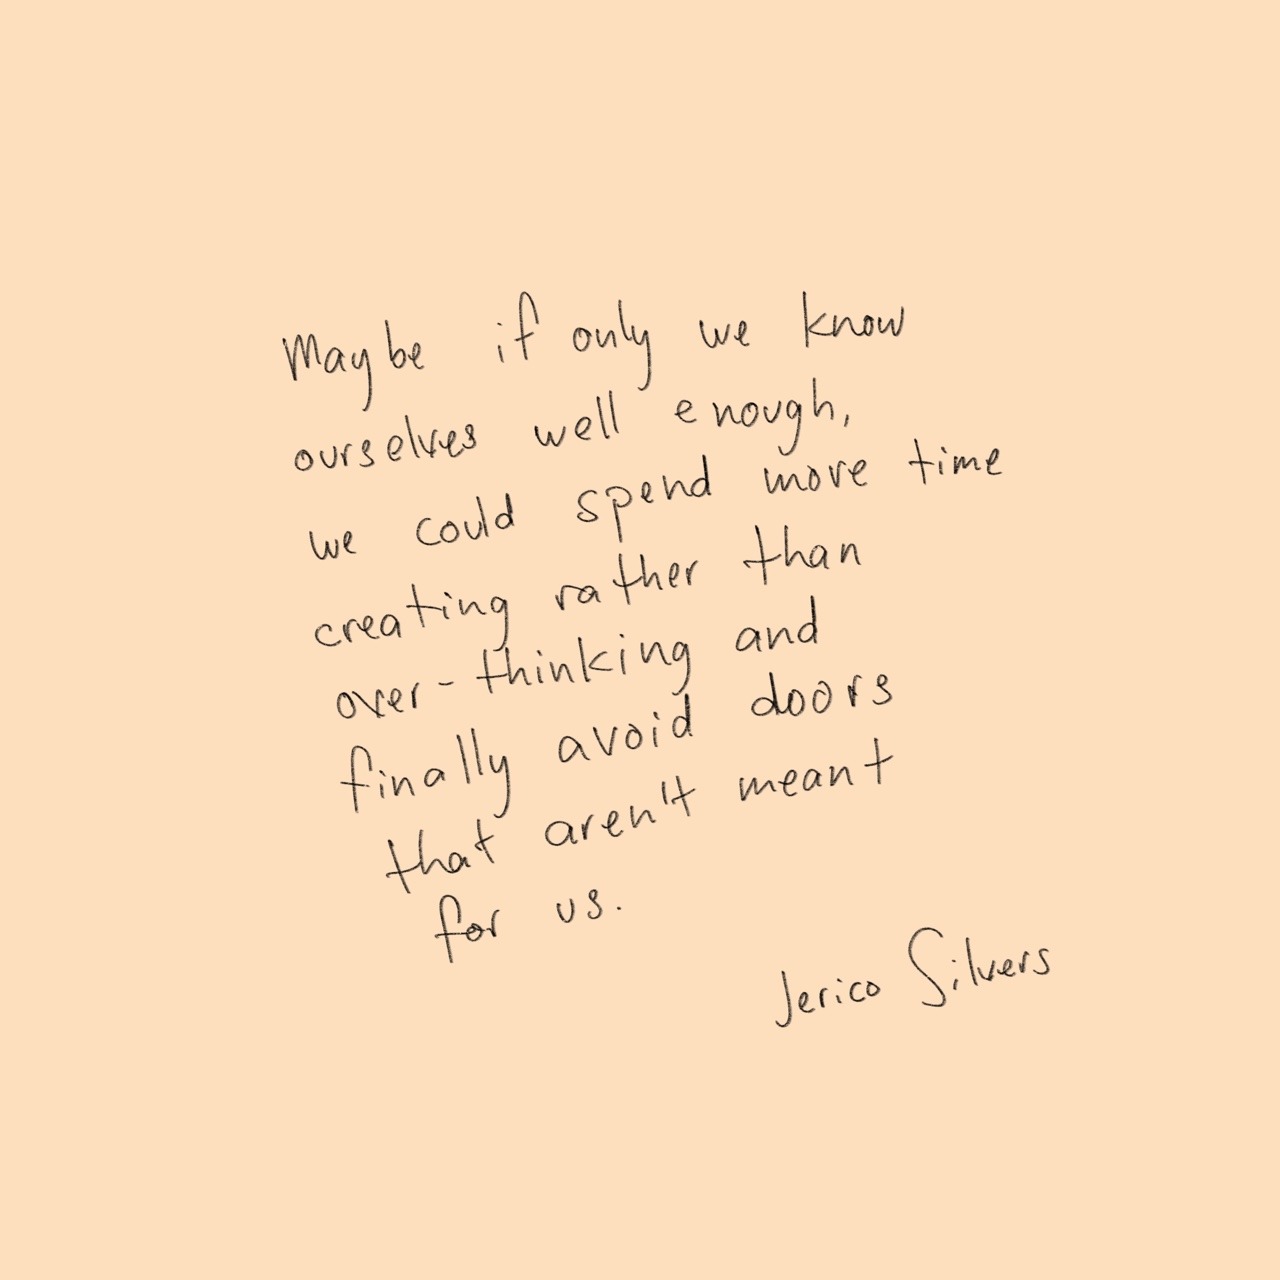 Maybe if only we know
ourselves well enough,
we could spend more time
creating rather than
over-thinking and
finally avoid doors
that aren't meant
for us.
Jerico Silvers